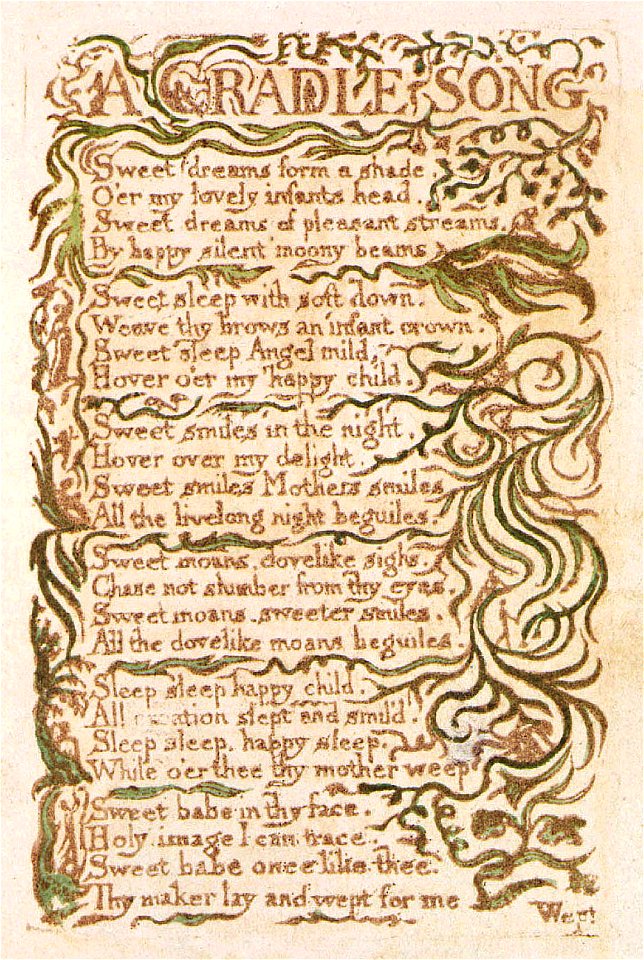 A CRADLE SONG
Sweet dreams form a shade
O'er my lovely infants head.
Sweet dreams of pleasant streams.
By happy silent moony beams
Sweet sleep with soft down.
Weave thy brows an infant crown.
Sweet sleep Angel mild,
Hover o'er my happy child.
Sweet smiles in the night.
Hover over my delight.
Sweet smiles Mothers smiles
All the livelong night beguiles.
Sweet moans, dovelike sighs.
Chase not slumber from thy eyes.
Sweet moans. sweeter smiles.
All the dovelike moans beguiles.
Sleep sleep happy child.
All creation slept and smil'd.
Sleep sleep, happy sleep.
While o'er thee thy mother weep
Sweet babe in thy face.
Holy image I can trace.
Sweet babe once like thee.
Thy maker lay and wept for me
Wept